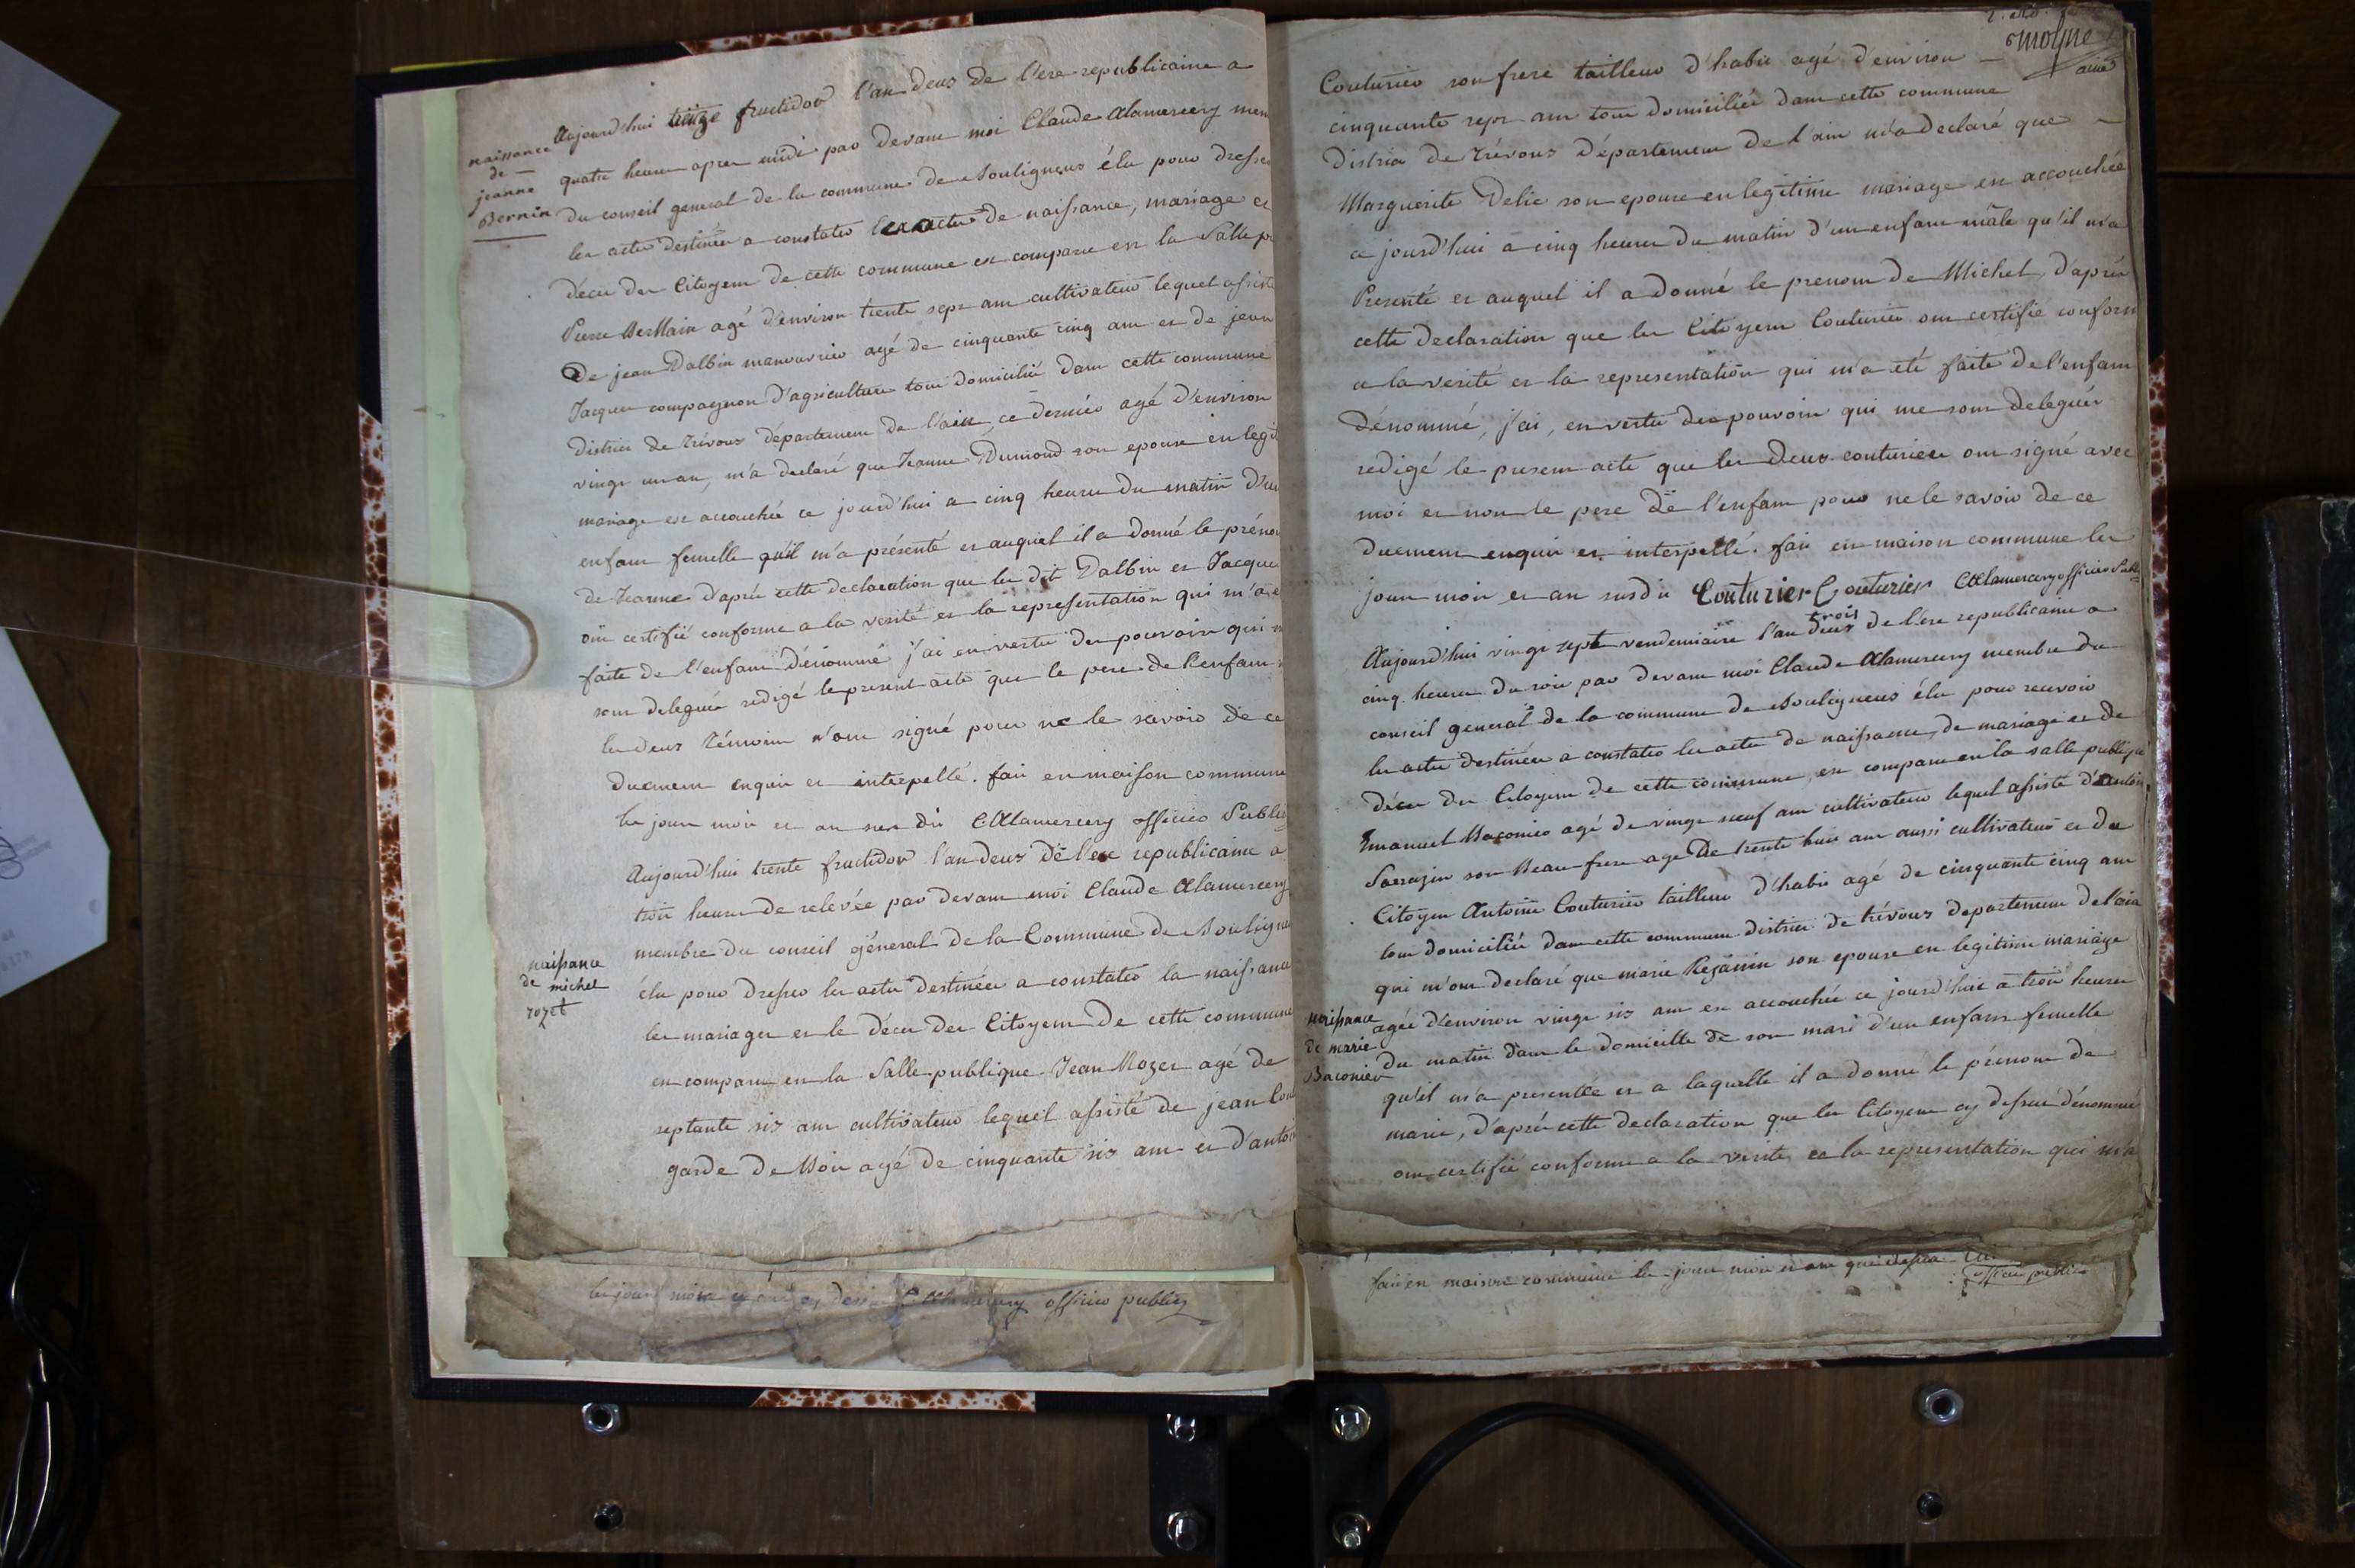 naissance
de
jeanne
Bernin
Aujourd'hui treize fructidor l'an deus de l'ere republicaine a
quatre heures apres midi par devant moi Claude Alamercery mem
du conseil general de la commune de Souligneus élu pour dresser
les actes destinés a constater les actes de naissance, mariage et
décès des Citoyens de cette commune est comparu en la Salle p
Pierre agé d'environ trente sept ans cultivateur lequel assisté
De jean Dalbin manouvrier agé de cinquante cinq ans et de jean
Jacques compagnon d'agriculture tous domiciliés dans cette commune
district de trévoux département de l'ain ce dernier agé d'environ
vingt un an, m'a declaré que Jeanne Dumond son epouse en legit
mariage est accouchée ce jourd'hui a cinq heures du matin d'un
enfant femelle qu'il m'a présenté et auquel il a donné le prénom
de Jeanne d'après cette declaration que les dit Dalbin et Jacques
ont certifié conforme a la verité et la representation qui m'a é
faite de l'enfant dénommé j'ai en vertu des pouvoirs qui m
sont delegués redigé le present acte que le pere de l'enfant
les deus témoins n'ont signé pour ne le savoir de ce
duement enquis et interpellé. fait en maison commune
les jour mois et an sus dit CAlamercery officier Public
naissance
de michel
rozet
Aujourd'hui trente fructidor l'an deus de l'ere republicaine a
trois heures de relevée par devant moi Claude Alamercery
membre du conseil géneral de la Commune de Souligne
élu pour dresser les actes destinés a constater la naissance
les mariages et le décès des Citoyens de cette commune
est comparu en la Salle publique Jean Rozet agé de
septante six ans cultivateur lequel assisté de jean Cou
garde de Bois agé de cinquante six ans et d'antoi
les jour mois et an cy dessus C. Alamercery officier public
moyne
ainé
Couturier son frere tailleur d'habit agé d'environ
cinquante sept ans tous domiciliés dans cette commune
district de trévous département de l'ain m'a declaré que
Marguerite Delie son epouse en legitime mariage est accouchée
ce jourd'hui a cinq heures du matin d'un enfant mâle qu'il m'a
Presenté et auquel il a donné le prenom de Michel, d'après
cette declaration que les Citoyens Couturier ont certifié conform
a la verité et la representation qui m'a été faite de l'enfant
dénommé, j'ai, en vertu des pouvoirs qui me sont delegués
redigé le present acte que les deus couturier ont signé avec
moi et non le pere de l'enfant pour ne le savoir de ce
duement enquis et interpellé. fait en maison commune les
jour mois et an susdit Couturier Couturier CAlamercery officier Public
Aujourd'hui vingt sept vendemiaire l'an deus trois de l'ere republicaine a
cinq heures du soir par devant moi Claude Alamercery membre du
conseil general de la commune de Souligneus élu pour recevoir
les actes destinés a constater les actes de naissance, de mariage et de
décès des Citoyens de cette commune, est comparu en la salle publique
Emanuel Baconier agé de vingt neuf ans cultivateur lequel assisté d'antoin
Sarrazin son Beau frere agé De trente huit ans aussi cultivateur et du
Citoyen Antoine Couturier tailleur d'habit agé de cinquante cinq ans
tous domiciliés dans cette commune district de trévous departement de l'ain
qui m'ont declaré que marie Rejanin son epouse en legitime mariage
naissance
de marie
Baconier
agée d'environ vingt six ans est accouchée ce jourd'hui a trois heures
du matin dans le domicille de son mari d'un enfant femelle
qu'il m'a presentée et a laquelle il a donné le prénom de
marie, d'après cette declaration que les Citoyens cy dessus dénommé
ont certifié conforme a la verité et la representation qui m'a
fait en maison commune les jour mois et an que dessus
officier public